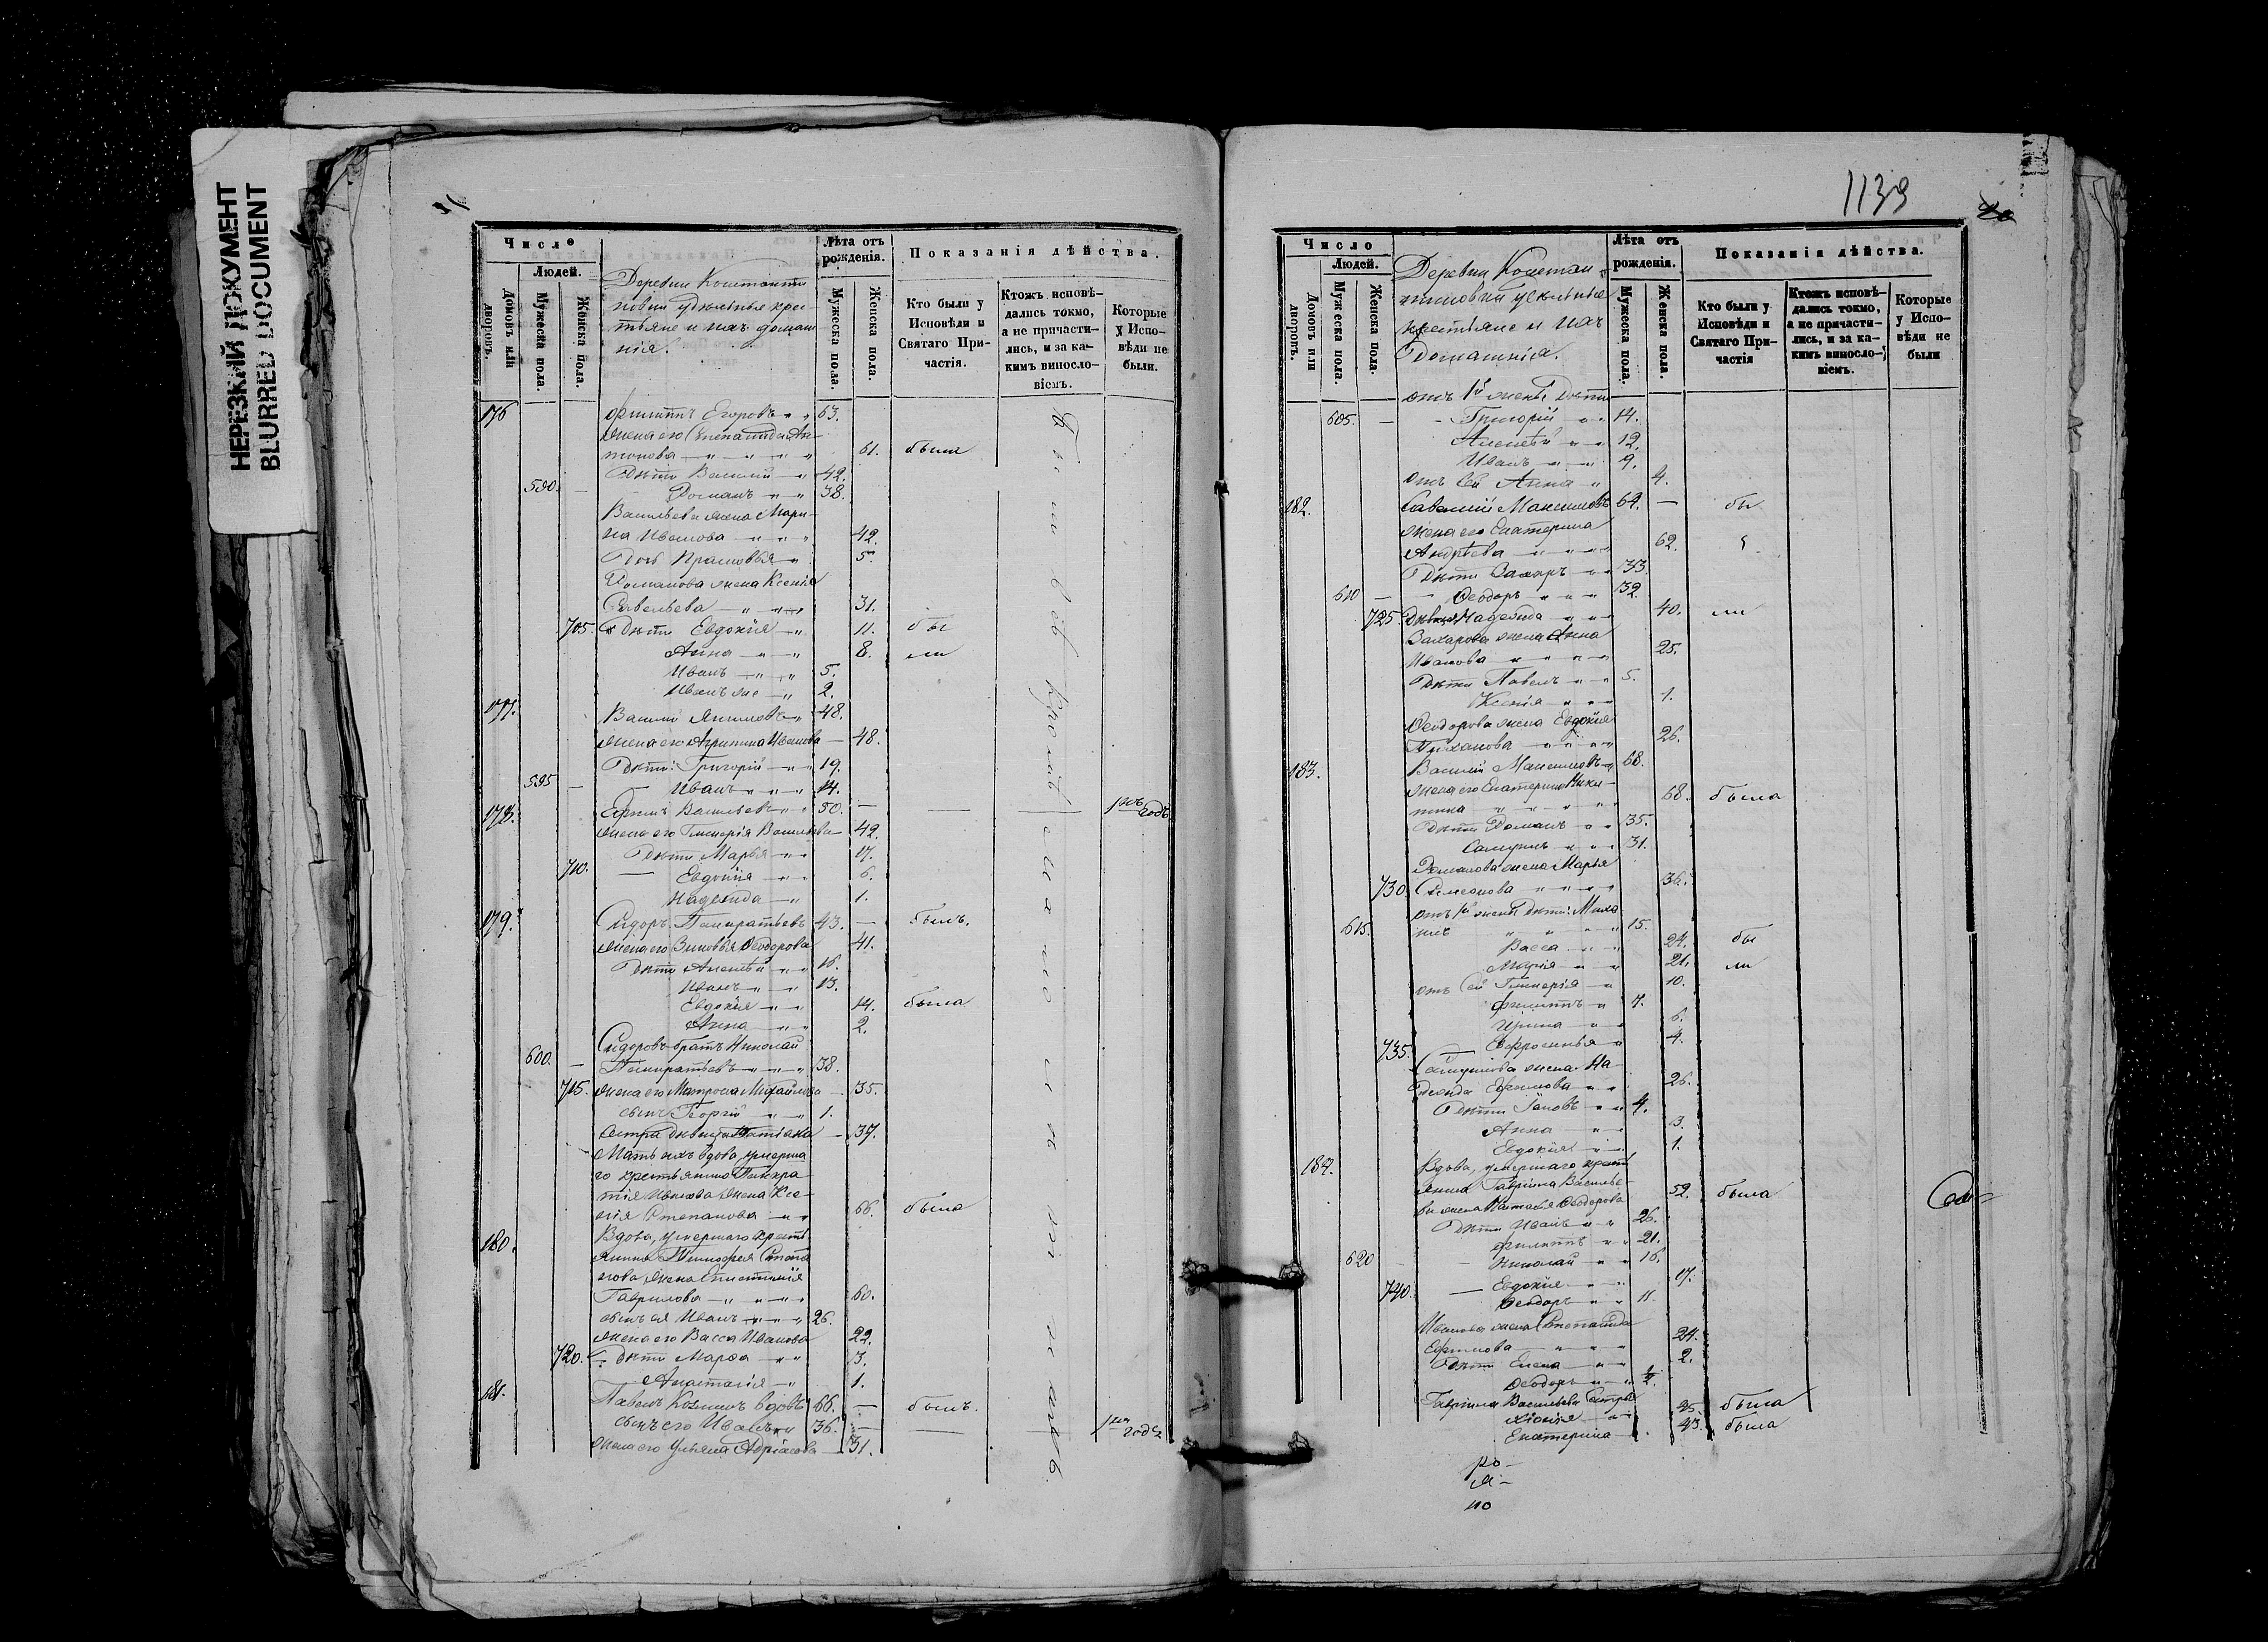 НЕРЕЗКИЙ ДОКУМЕНТ
BLURRED DOCUMENT
Число
Людей.
Домовъ или дворовъ.
Мужеска пола.
Женска пола.
Деревни Константи
новки удѣльные кре-
стьяне и ихъ домаш
нія.
Лѣта отъ рожденія.
Мужеска пола.
Женска пола.
Показанія дѣйства.
Кто были у Исповѣди и Святаго Причастія.
Ктожъ исповѣ-
дались токмо,
а не причасти-
лись, и за ка-
кимъ виносло-
віемъ.
Которые
у Испо-
вѣди не
были.
176 Филиппъ Егоровъ 63.
жена его Степанида Ан-
тонова 61. была
Дѣти Василій 42.
590. Романъ 38.
Васильева жена Мари-
на Иванова 42.
Дочь Прасковья 5.
Романова жена Ксенія
Савельева 31.
705. Дѣти Евдокія 11. бы
Анна 8. ли
Иванъ 5.
Иванъ же 2.
177. Василій Акимовъ 48.
жена его Агрипина Иванова 48.
Дѣти: Григорій 19.
595 Иванъ 14.
178. Ефимъ Васильевъ 50. 1й годъ
жена его Гликерія Васильева 42.
Дѣти Марья 17.
710. Евдокія 6.
Надежда 1.
179. Сидоръ Панкратьевъ 43. былъ.
жена его Зиновья Ѳеодорова 41.
Дѣти Алексѣй 16.
Иванъ 13.
Евдокія 14. была
Анна 2.
Сидоровъ братъ Николай
600. Панкратьевъ 38.
715. жена его Матрона Михайлова 35.
сынъ Георгій 1.
Сестра дѣвица Татіана 37.
Мать ихъ вдова, умерша
го крестьянина Панкра
тія Иванова жена Ксе-
нія Степанова 66. была
180. Вдова, умершаго кресть
янина Тимофея Степа
нова жена
Гаврилова 60.
сынъ ея Иванъ 26.
жена его Васса Иванова 22.
720. Дѣти Марѳа 3.
Анастасія 1.
181. Павелъ Козминъ вдовъ 66. былъ.
сынъ его Иванъ 36. 1й годъ
жена его Ульяна 31.
1139
Число
Людей.
Домовъ или дворовъ.
Мужеска пола.
Женска пола.
Деревни Констан-
тиновки удѣльные
крестьяне и ихъ
домашнія.
Лѣта отъ рожденія.
Мужеска пола.
Женска пола.
Показанія дѣйства.
Кто были у Исповѣди и Святаго Причастія
Ктожъ исповѣ-
дались токмо,
а не причасти-
лись, и за ка-
кимъ виносло-
віемъ.
Которые
у Испо-
вѣди не
были
отъ 1й жены Дѣти
605. Григорій 14.
Алексѣй 12.
Иванъ 9.
отъ сей Анна 4.
182. Савелій Максимовъ 64. бы
жена его Екатерина
Андрѣева 62.
Дѣти Захаръ 33.
610 Ѳеодоръ 32.
725 Дѣвица Надежда 40. ли
Захарова жена Анна
Иванова 25.
Дѣти Павелъ 5.
Ксенія 1.
Ѳеодорова жена Евдокія
26.
183. Василій Максимовъ 68.
жена его Екатерина Ники-
тина 68. была
Дѣти Романъ 35.
31.
Романова жена Марья
730 Симеонова 36.
отъ 1й жены Дѣти: Миха
615. илъ 15.
Васса 24. бы
Марія 21. ли
отъ сей Гликерія 10.
Филиппъ 7.
Ирина 6.
735. Евфросинья 4.
жена На-
дежда Ефимова 26.
Дѣти Іаковъ 4.
Анна 3.
Евдокія 1.
184. Вдова, умершаго кресть
янина Гавріила Василье-
ва жена Наталья Ѳеодорова 52. была
Дѣти Иванъ 26.
Филиппъ 21.
620 Николай 16.
740. Евдокія 17.
Ѳеодоръ 11.
Иванова жена Степанида
Ефимова 24.
Дѣти Елена 2.
Ѳеодоръ
Гавріила Васильева сестры
45. была
Екатерина 43. была